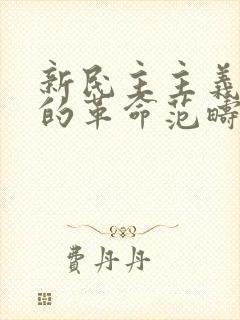 新民主主義
的革命范疇
費丹丹